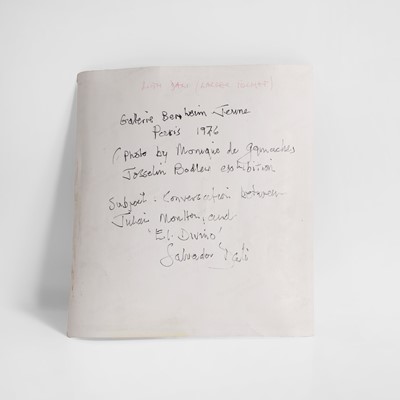 Galerie Bernheim Jeune
Paris 1976
(Photo by Monique de Gamaches
Joscelin Bodley exhibition
Subject. Conversation between
Julian Moulton, and
'El. Divino'
Salvador Dali